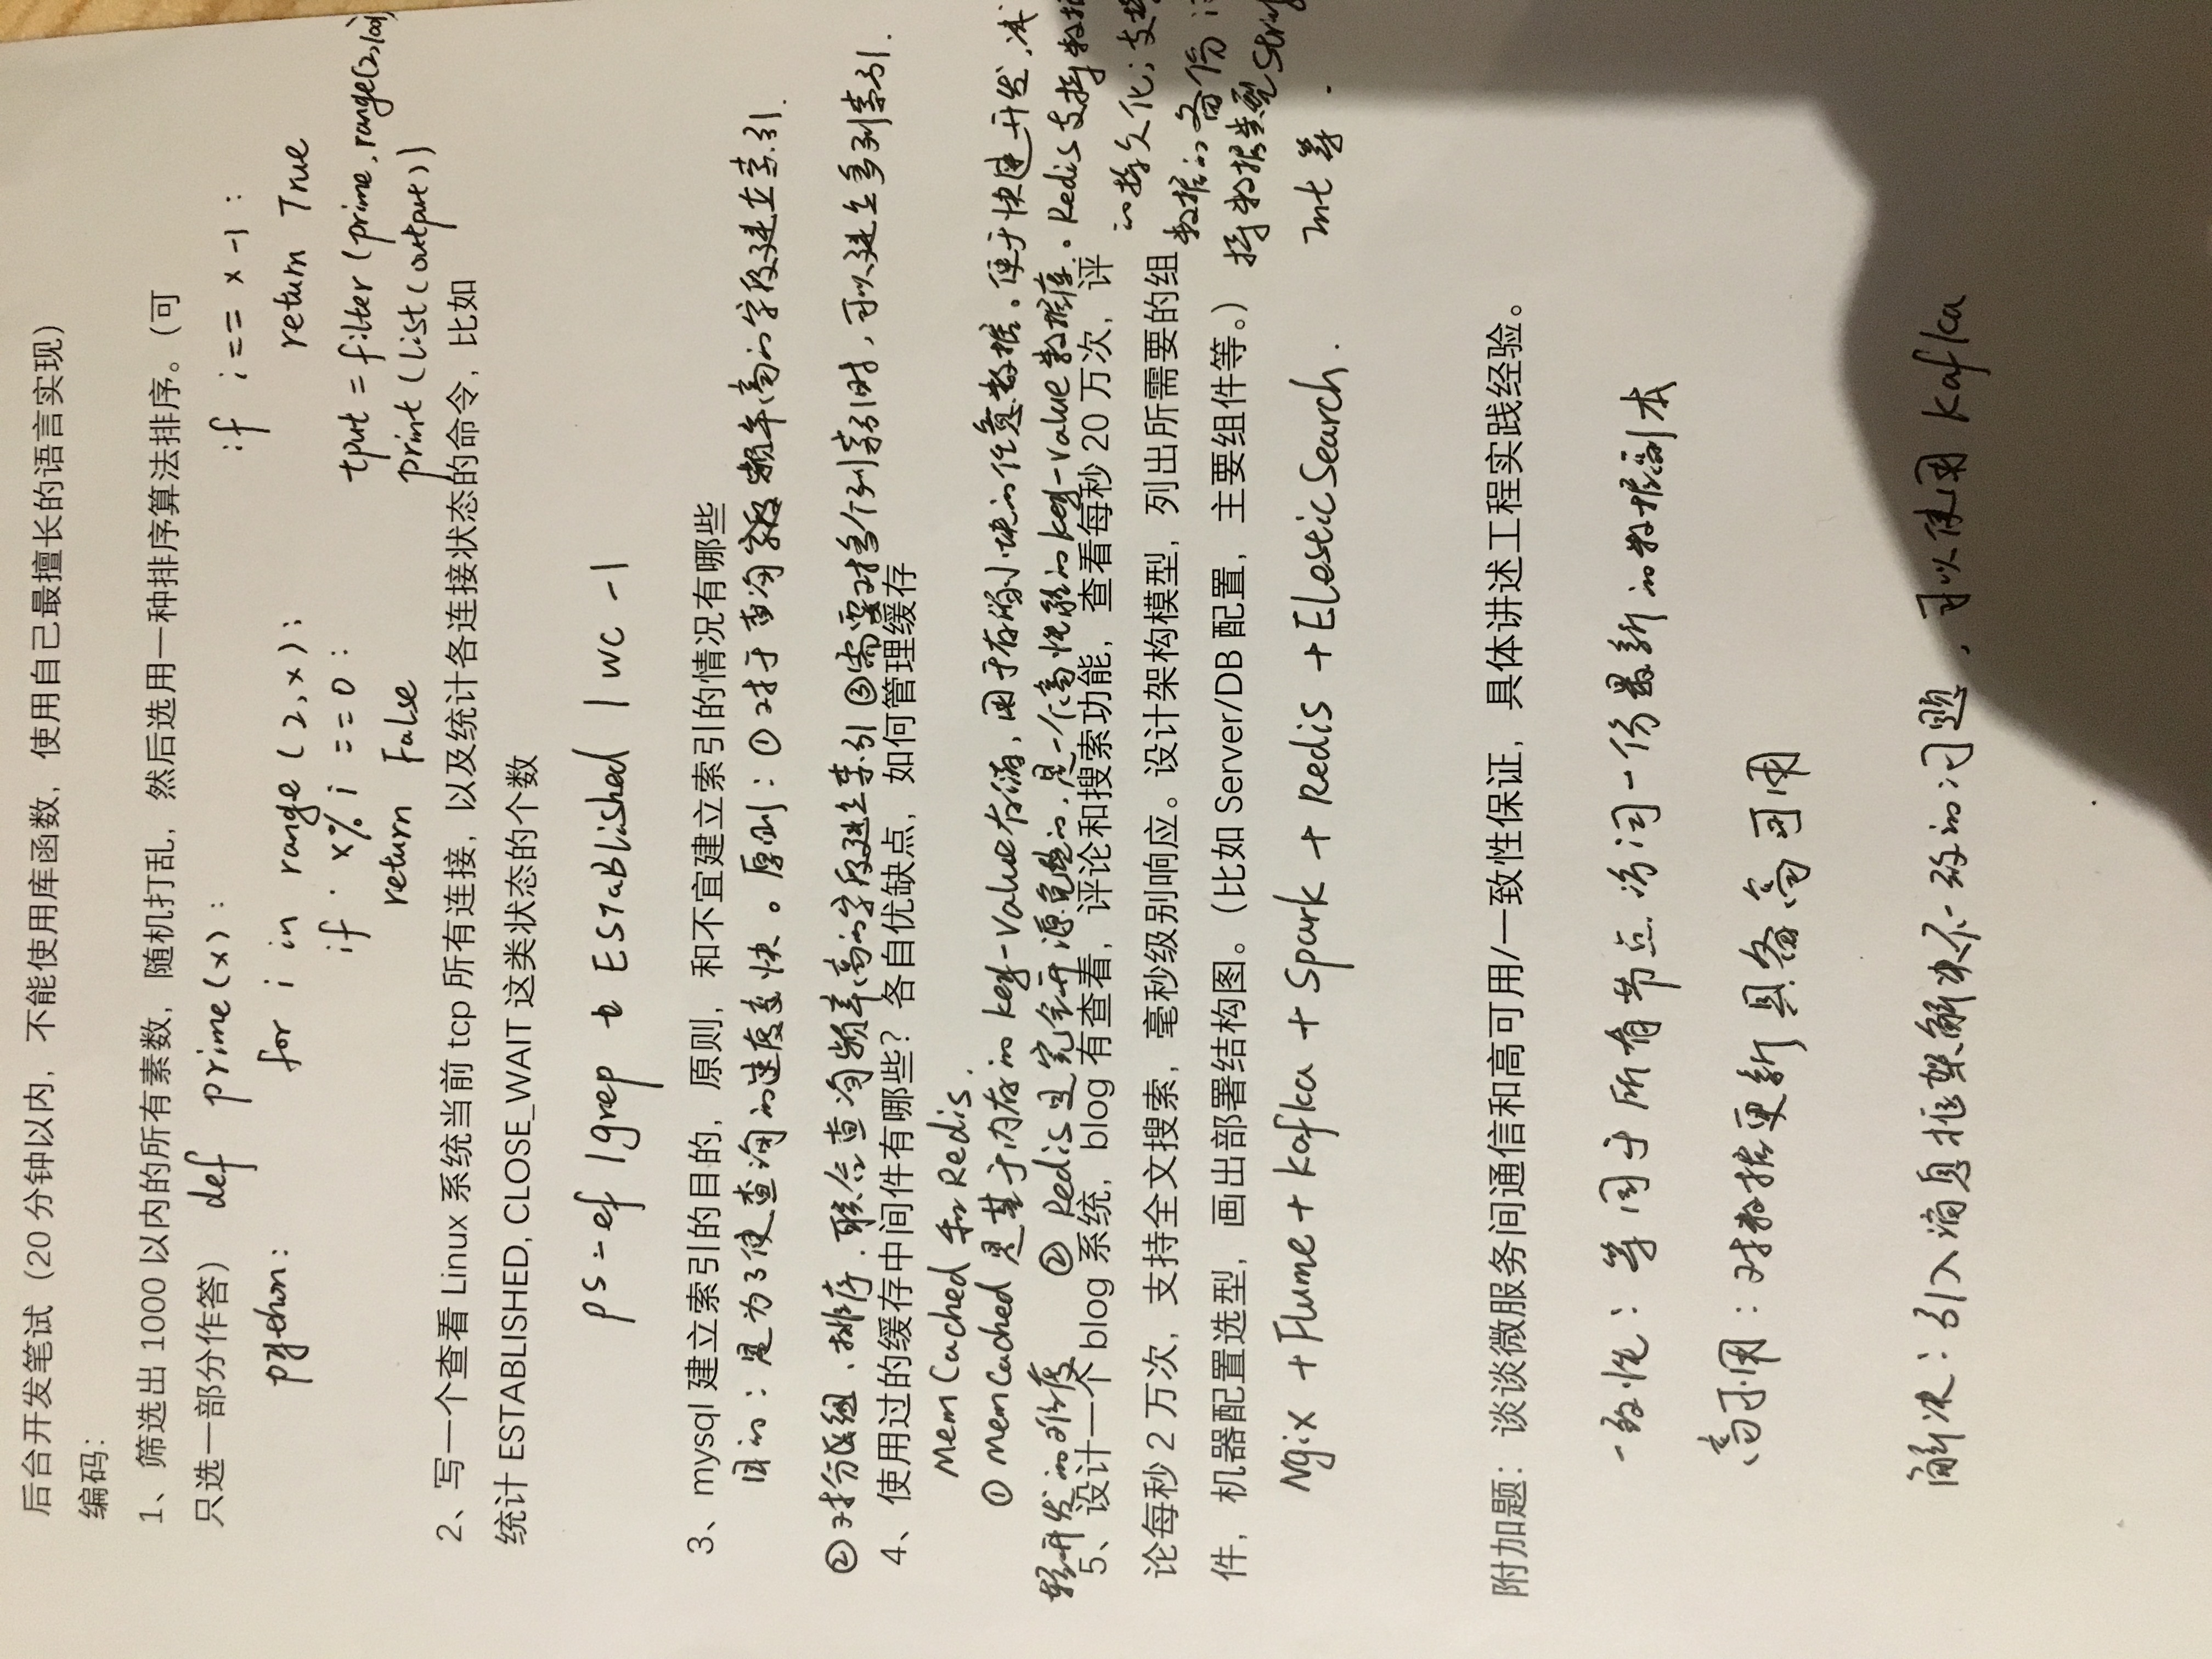 后台开发笔试（20 分钟以内，不能使用库函数，使用自己最擅长的语言实现）
编码：
1、筛选出 1000 以内的所有素数，随机打乱，然后选用一种排序算法排序。（可
只选一部分作答）
python:
def prime(x):
for i in range(2,x):
if x% i ==0:
return False
if i== x-1:
return True
tput = filter(prime, range(2,100
print(list(output))
2、写一个查看 Linux 系统当前 tcp 所有连接，以及统计各连接状态的命令，比如
统计 ESTABLISHED, CLOSE_WAIT 这类状态的个数
ps -ef |grep ESTaBlished | wc -l
3、mysql 建立索引的目的，原则，和不宜建立索引的情况有哪些
目的：是为了使查询的速度变快。原则：①对于查询字段频率高的字段建立索引.
②对分组、排序、联合查询频率高的字段建立索引 ③需要对多个列索引时，可以建立多列索引.
4、使用过的缓存中间件有哪些？各自优缺点，如何管理缓存
MemCached 和 Redis.
① MemCached 是基于内存的 key-value 存储，用于存储小块的任意数据。便于快速开发，减
轻开发的难度 ② Redis是完全开源免费的，是一个高性能的key-value数据库。Redis支持数据
的持久化；支持
数据的备份
持数据类型 String
Int 等.
5、设计一个 blog 系统，blog 有查看，评论和搜索功能，查看每秒 20 万次，评
论每秒 2 万次，支持全文搜索，毫秒级别响应。设计架构模型，列出所需要的组
件，机器配置选型，画出部署结构图。（比如 Server/DB 配置，主要组件等。）
Ngix + Flume + Kafka + Spark + Redis + ElesticSearch.
附加题：谈谈微服务间通信和高可用/一致性保证，具体讲述工程实践经验。
一致性：等同于所有节点访问一份最新的数据副本
高可用：对数据更新具备高可用
解决：引入消息框架解决不一致的问题，可以使用 Kafka